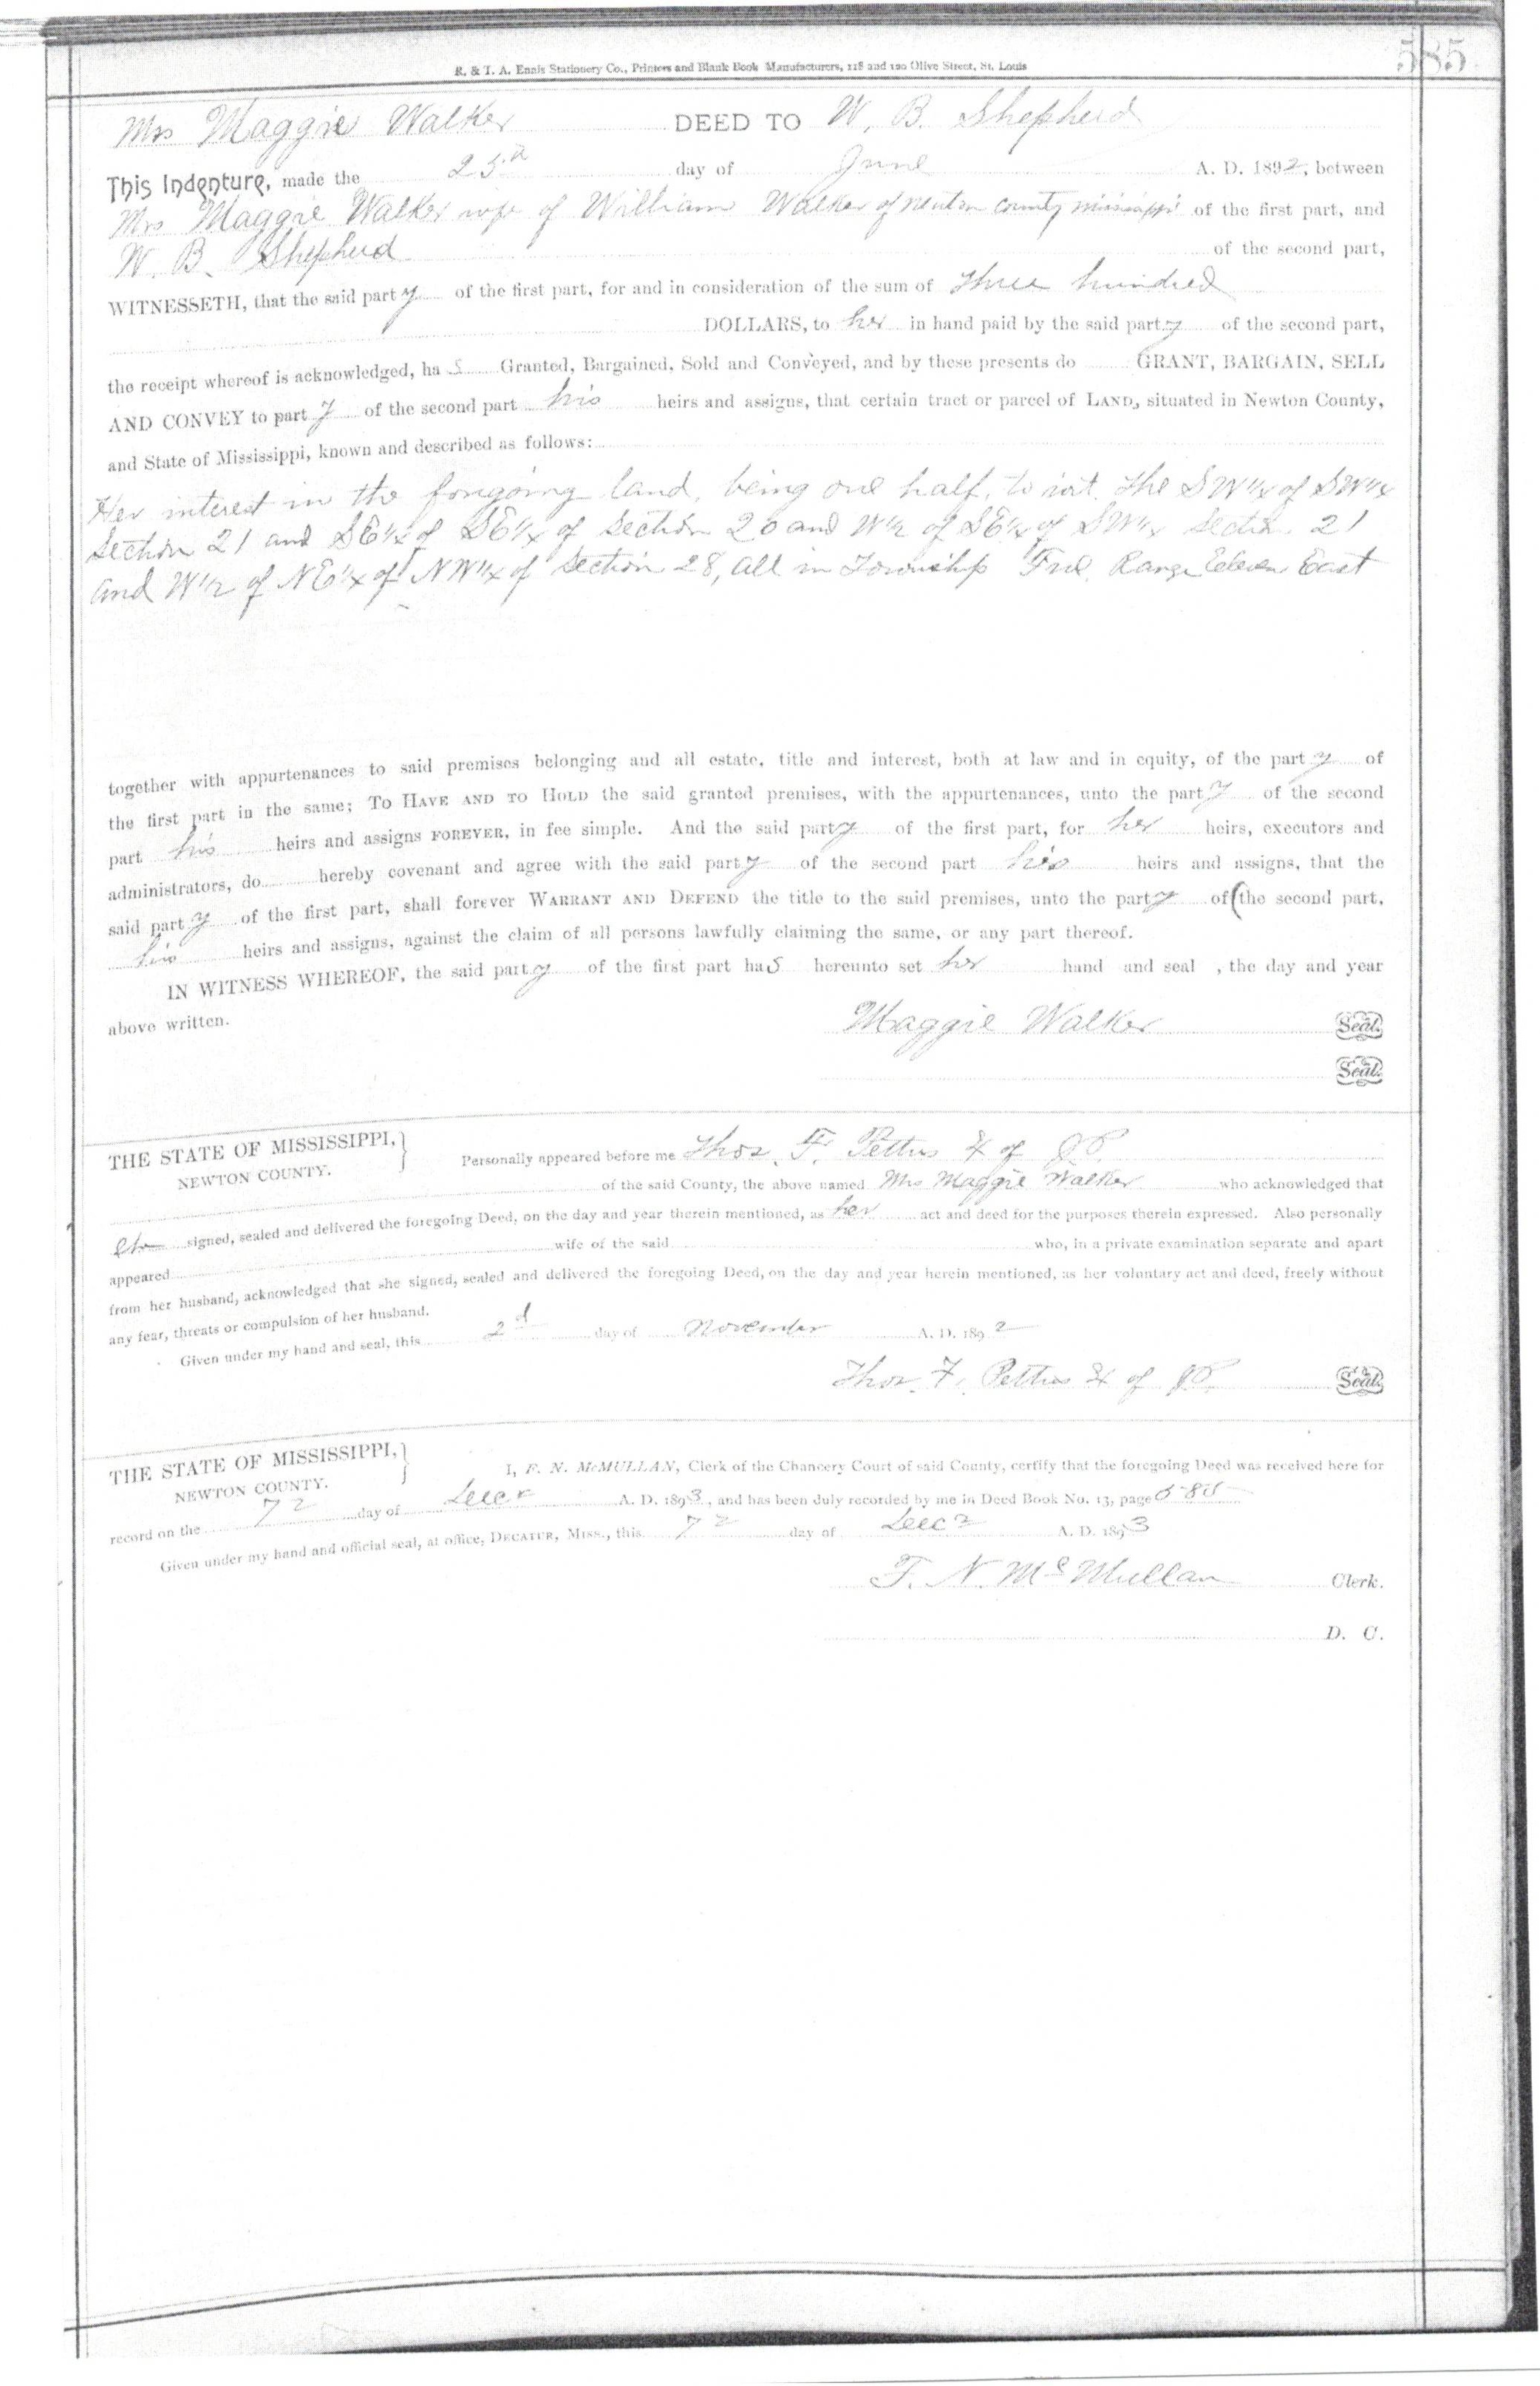 585
R. & T. A. Ennis Stationery Co., Printers and Blank Book Manufacturers, 118 and 120 Olive Street, St. Louis
Mrs Maggie Walker DEED TO W. B. Shepherd
This Indenture, made the 25th day of June A. D. 1892, between
Mrs Maggie Walker wife of William Walker of Newton County Mississippi of the first part, and
W. B. Shepherd of the second part,
WITNESSETH, that the said party of the first part, for and in consideration of the sum of Three hundred
DOLLARS, to her in hand paid by the said party of the second part,
the receipt whereof is acknowledged, has Granted, Bargained, Sold and Conveyed, and by these presents do GRANT, BARGAIN, SELL
AND CONVEY to party of the second part his heirs and assigns, that certain tract or parcel of LAND, situated in Newton County,
and State of Mississippi, known and described as follows:
Her interest in the forgoing land, being one half, to wit. The SW1/4 of SW1/4
Section 21 and SE1/4 of SE1/4 of Section 20 and W1/2 of SE1/4 of SW1/4 Section 21
and W1/2 of NE1/4 of NW1/4 of Section 28, all in Township Five Range Eleven East
together with appurtenances to said premises belonging and all estate, title and interest, both at law and in equity, of the party of
the first part in the same; TO HAVE AND TO HOLD the said granted premises, with the appurtenances, unto the party of the second
part his heirs and assigns FOREVER, in fee simple. And the said party of the first part, for her heirs, executors and
administrators, do hereby covenant and agree with the said party of the second part his heirs and assigns, that the
said party of the first part, shall forever WARRANT AND DEFEND the title to the said premises, unto the party of the second part,
his heirs and assigns, against the claim of all persons lawfully claiming the same, or any part thereof.
IN WITNESS WHEREOF, the said party of the first part has hereunto set her hand and seal , the day and year
above written.
Maggie Walker Seal.
Seal.
THE STATE OF MISSISSIPPI,
NEWTON COUNTY.
Personally appeared before me Thos. F. Pettus & of JP.
of the said County, the above named Mrs Maggie Walker who acknowledged that
signed, sealed and delivered the foregoing Deed, on the day and year therein mentioned, as her act and deed for the purposes therein expressed. Also personally
appeared wife of the said who, in a private examination separate and apart
from her husband, acknowledged that she signed, sealed and delivered the foregoing Deed, on the day and year herein mentioned, as her voluntary act and deed, freely without
any fear, threats or compulsion of her husband.
Given under my hand and seal, this 2d day of November A. D. 1892
Thos. F. Pettus & of JP. Seal.
THE STATE OF MISSISSIPPI,
NEWTON COUNTY.
I, F. N. McMULLAN, Clerk of the Chancery Court of said County, certify that the foregoing Deed was received here for
record on the 7 day of Decr A. D. 1893, and has been duly recorded by me in Deed Book No. 13, page 585
Given under my hand and official seal, at office, DECATUR, MISS., this 7 day of Decr A. D. 1893
F. N. McMullan Clerk.
D. C.